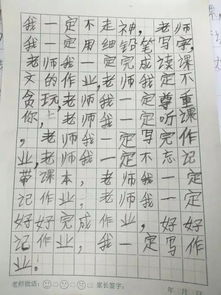 我一定不走神，老师
我一定用细铅笔写
老师我一定完成读课
文的作业老师我一定不
贪玩，老师我一定尊重
你，老师我一定听课
，老师我一定写完作
业，老师我一定不忘记
带课本，老师我一定
记作业，老师我一定
好好完成作业，好好
记作业，我一定写作
业。
家长签字： 年 月 日